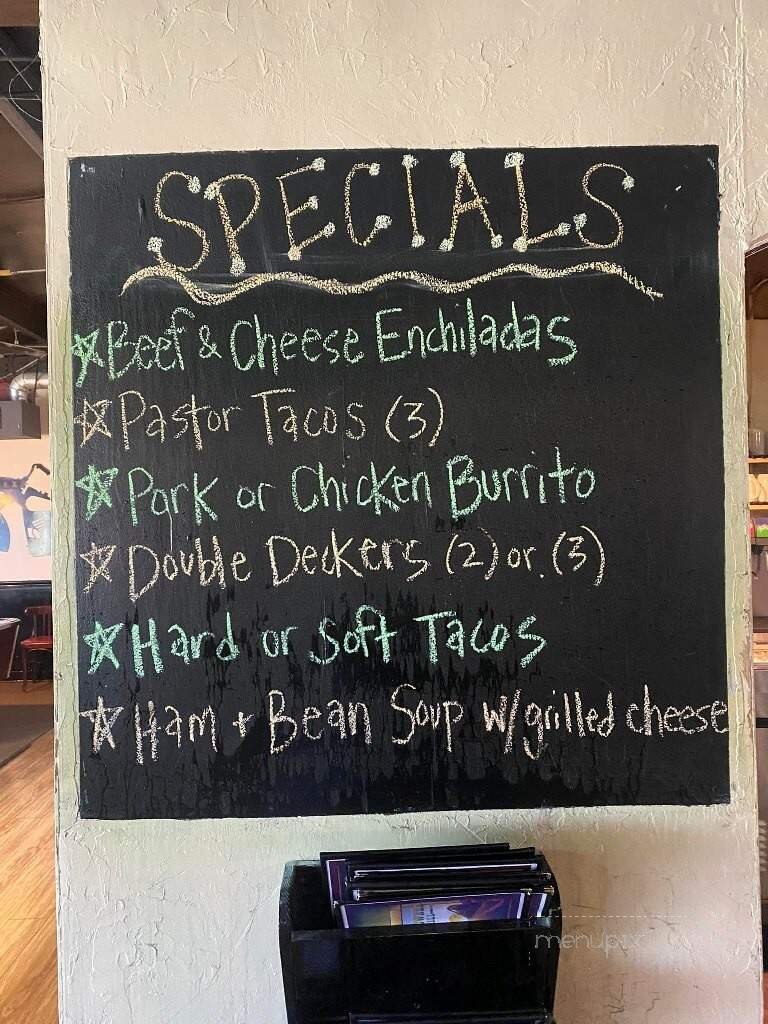 SPECIALS
☆Beef & Cheese Enchiladas
☆Pastor Tacos (3)
☆Pork or Chicken Burrito
☆Double Deckers (2) or (3)
☆Hard or Soft Tacos
☆Ham + Bean Soup w/grilled cheese
menupix